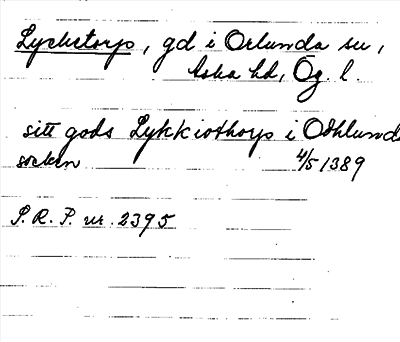 Lyckstorp, gd i Orlunda sn,
Aska hd, Ög. l.
sitt gods Lykkiothorp i Othlunda
socken 4/5 1389
S. R. P. nr. 2395